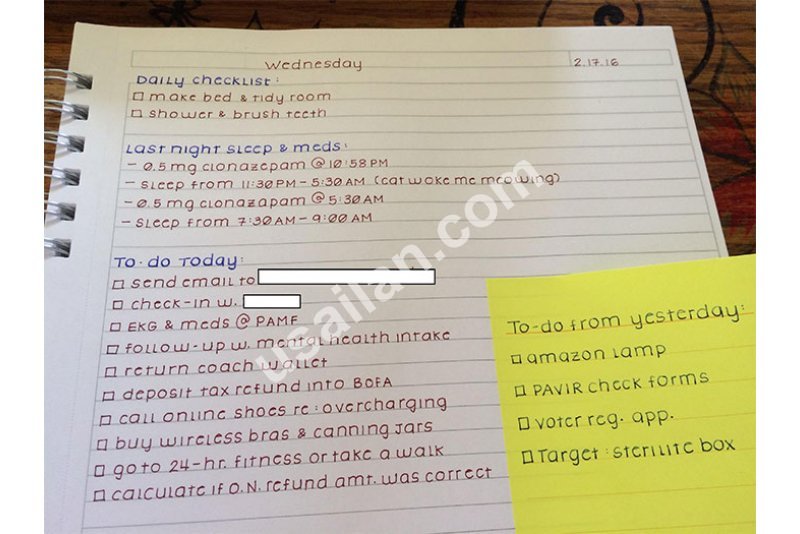 Wednesday 2.17.16
Daily checklist:
make bed & tidy room
shower & brush teeth
Last night sleep & meds:
- 0.5 mg clonazepam @ 10:58 PM
- sleep from 11:30 PM - 5:30 AM (cat woke me meowing)
- 0.5 mg clonazapam @ 5:30 AM
- sleep from 7:30 AM - 9:00 AM
To-do today:
send email to
check-in w.
EKG & meds @ PAMF
follow-up w. mental health intake
return coach wallet
deposit tax refund into BOFA
call online shoes re: overcharging
buy wireless bras & canning jars
go to 24-hr. fitness or take a walk
calculate if O.N. refund amt. was correct
To-do from yesterday:
amazon lamp
PAVIR check forms
voter reg. app.
Target: sterilite box
usailan.com